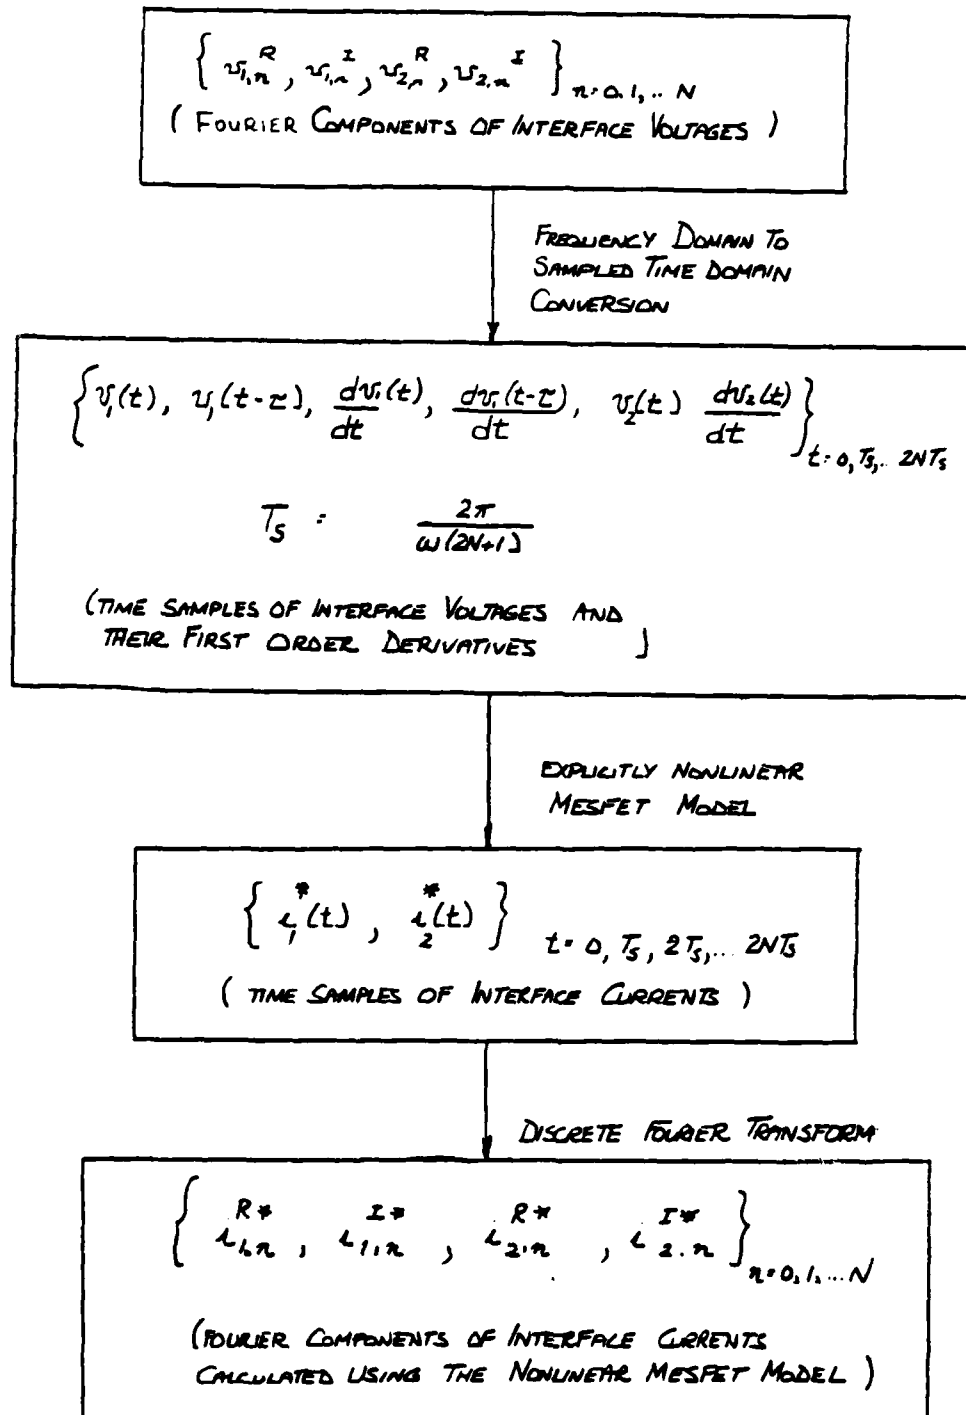 { v₁,ₙᴿ, v₁,ₙᴵ, v₂,ₙᴿ, v₂,ₙᴵ }ₙ₌₀,₁,.. N
( FOURIER COMPONENTS OF INTERFACE VOLTAGES )
FREQUENCY DOMAIN TO
SAMPLED TIME DOMAIN
CONVERSION
{ v₁(t), v₁(t-τ), dv₁(t)/dt, dv₁(t-τ)/dt, v₂(t) dv₂(t)/dt } t=0, Ts,.. 2NTs
Ts = 2π/ω(2N+1)
(TIME SAMPLES OF INTERFACE VOLTAGES AND
THEIR FIRST ORDER DERIVATIVES )
EXPLICITLY NONLINEAR
MESFET MODEL
{ i₁*(t), i₂*(t) } t = 0, Ts, 2Ts,... 2NTs
( TIME SAMPLES OF INTERFACE CURRENTS )
DISCRETE FOURIER TRANSFORM
{ i₁,ₙᴿ*, i₁,ₙᴵ*, i₂.ₙᴿ*, i₂.ₙᴵ* } n=0,1,...N
(FOURIER COMPONENTS OF INTERFACE CURRENTS
CALCULATED USING THE NONLINEAR MESFET MODEL )